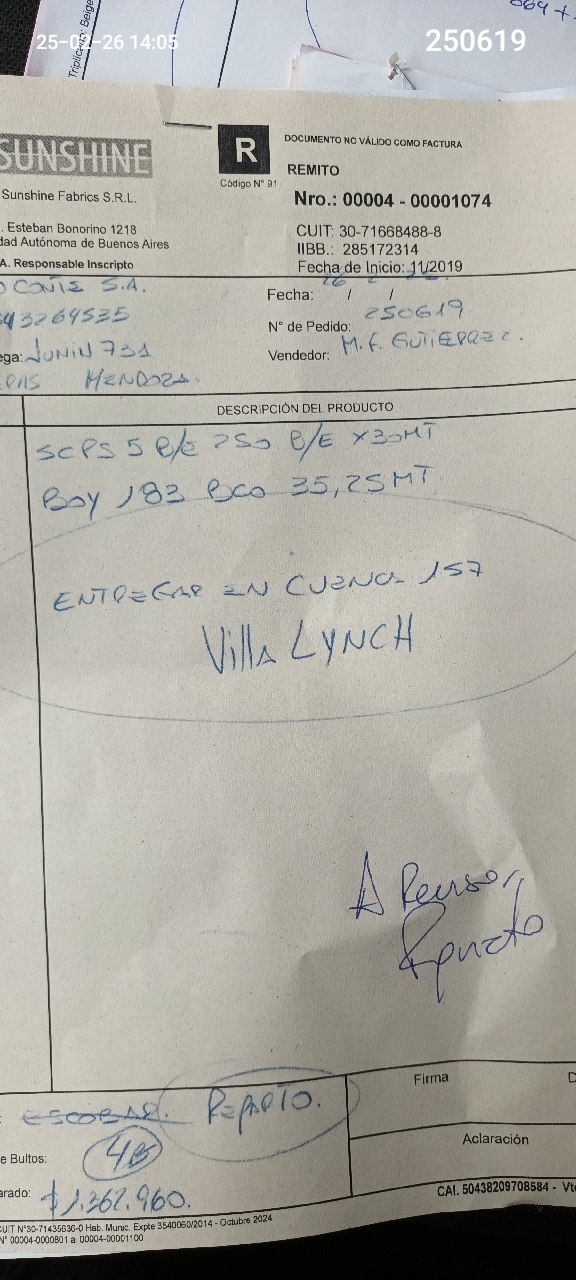 064 +
Triplicado: Beige
25-02-26 14:05
250619
SUNSHINE
R
DOCUMENTO NO VÁLIDO COMO FACTURA
Código N° 91
REMITO
Sunshine Fabrics S.R.L.
Nro.: 00004 - 00001074
. Esteban Bonorino 1218
dad Autónoma de Buenos Aires
CUIT: 30-71668488-8
IIBB.: 285172314
A. Responsable Inscripto
Fecha de Inicio: 11/2019
CONTE S.A.
Fecha: 26 / 2 /
43264535
N° de Pedido: 250619
ega: JUNIN 731
Vendedor: M. F. GUTIERREZ.
MENDOZA
DESCRIPCIÓN DEL PRODUCTO
SCPS 5 B/E 250 B/E X30MT
BOY 183 BCO 35,25 MT
ENTREGAR EN CUENCA 157
Villa LYNCH
A Revisar,
Renato
ESCOBAR. REPARTO.
Firma
e Bultos: 4B
Aclaración
arado: $1.362.960.
CAI. 50438209708584 - Vto
CUIT N°30-71435636-0 Hab. Munic. Expte 3540060/2014 - Octubre 2024
N° 00004-0000801 a: 00004-00001100